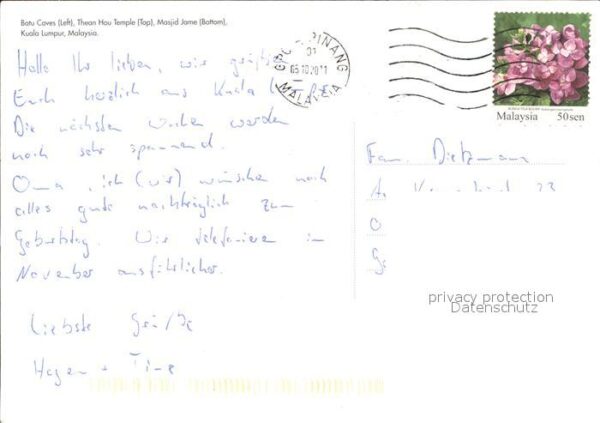 Batu Caves (Left), Thean Hou Temple (Top), Masjid Jame (Bottom),
Kuala Lumpur, Malaysia.
Hallo Ihr lieben, wir grüßen
Euch herzlich aus Kuala
Die nächsten Wochen werden
noch sehr spannend.
Oma, ich (wir) wünschen noch
alles gute nachträglich zum
Geburtstag. Wir telefonieren im
November ausführlicher.
Liebste Grüße
Hagen + Tine
PINANG
MALAYSIA
Malaysia 50sen
Fam. Dietzmann
privacy protection
Datenschutz